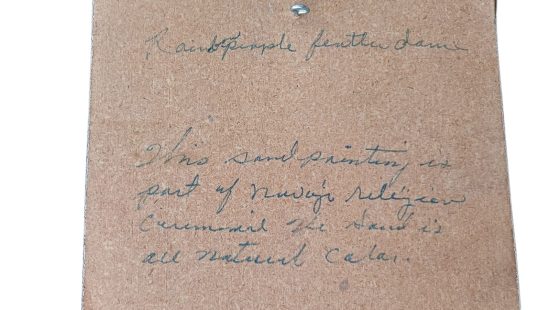 Rainbpeople feather dance
This sand painting is
part of Navajo religion
Ceremonie The Sand is
all natural Color.